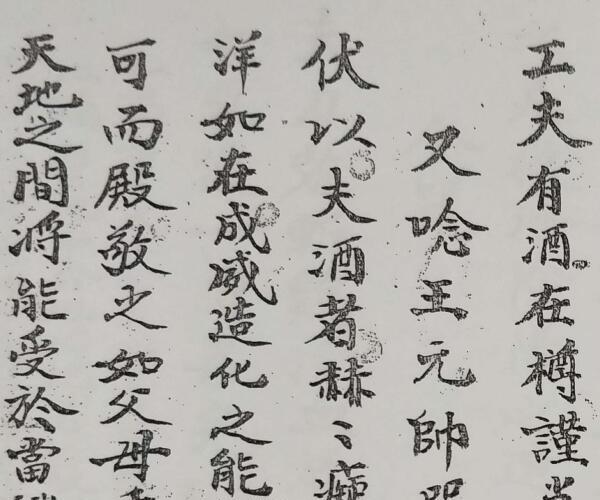 工夫有酒在樽謹
又唸王元帥
伏以夫酒者赫〻
洋如在成威造化之能
可而殿敬之如父母
天地之間将能受於當